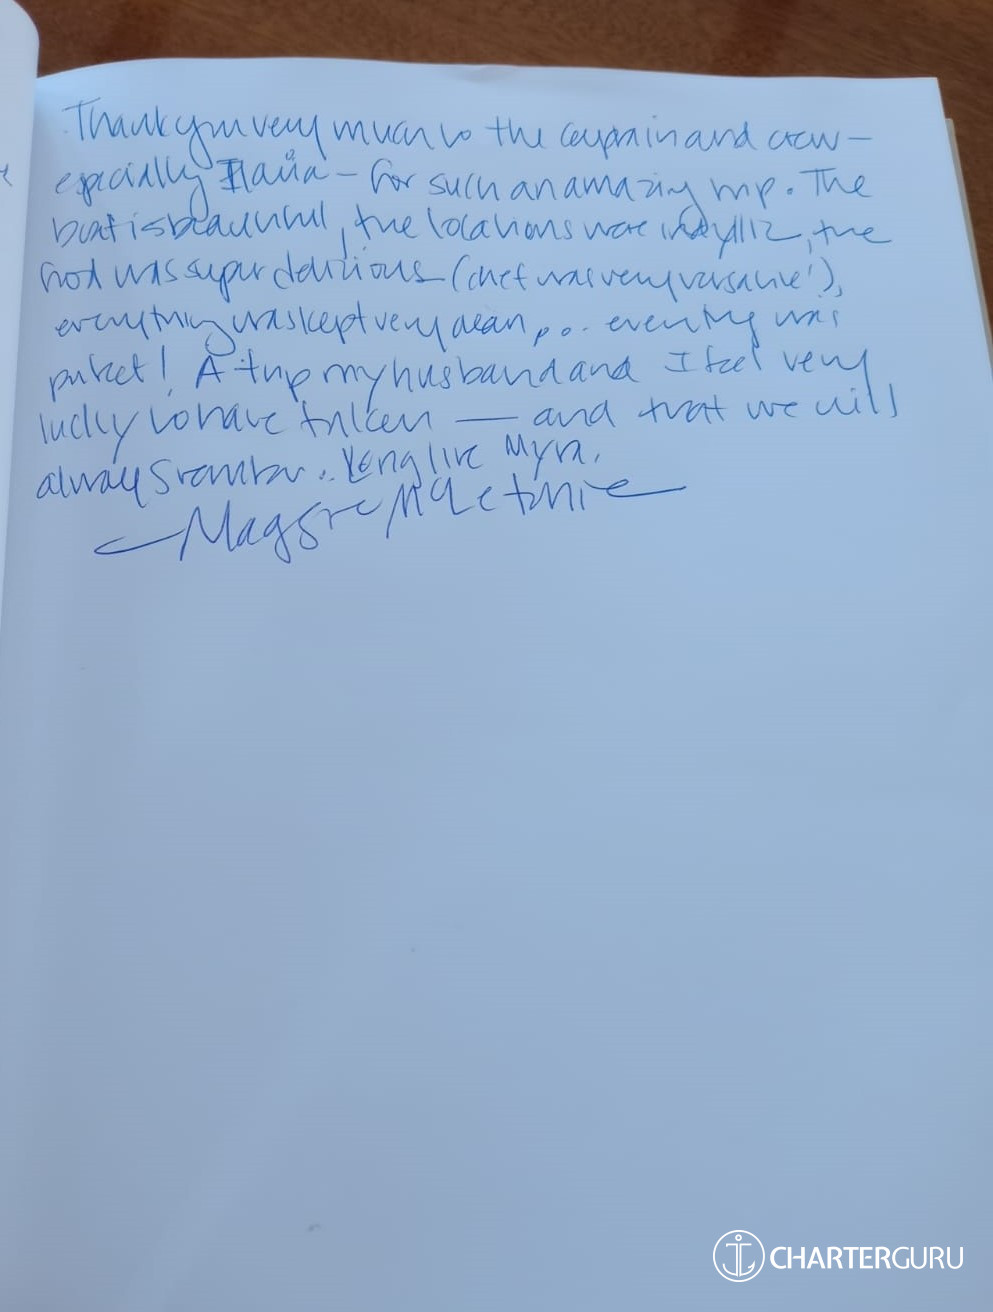 Thank you very much to the captain and crew —
especially — for such an amazing trip. The
boat is beautiful, the locations were idyllic, the
food was super delicious (chef was very versatile!),
everything was kept very clean, ... everything was
perfect! A trip my husband and I feel very
lucky to have taken — and that we will
always remember. Long live Myra.
— Maggie
CHARTERGURU